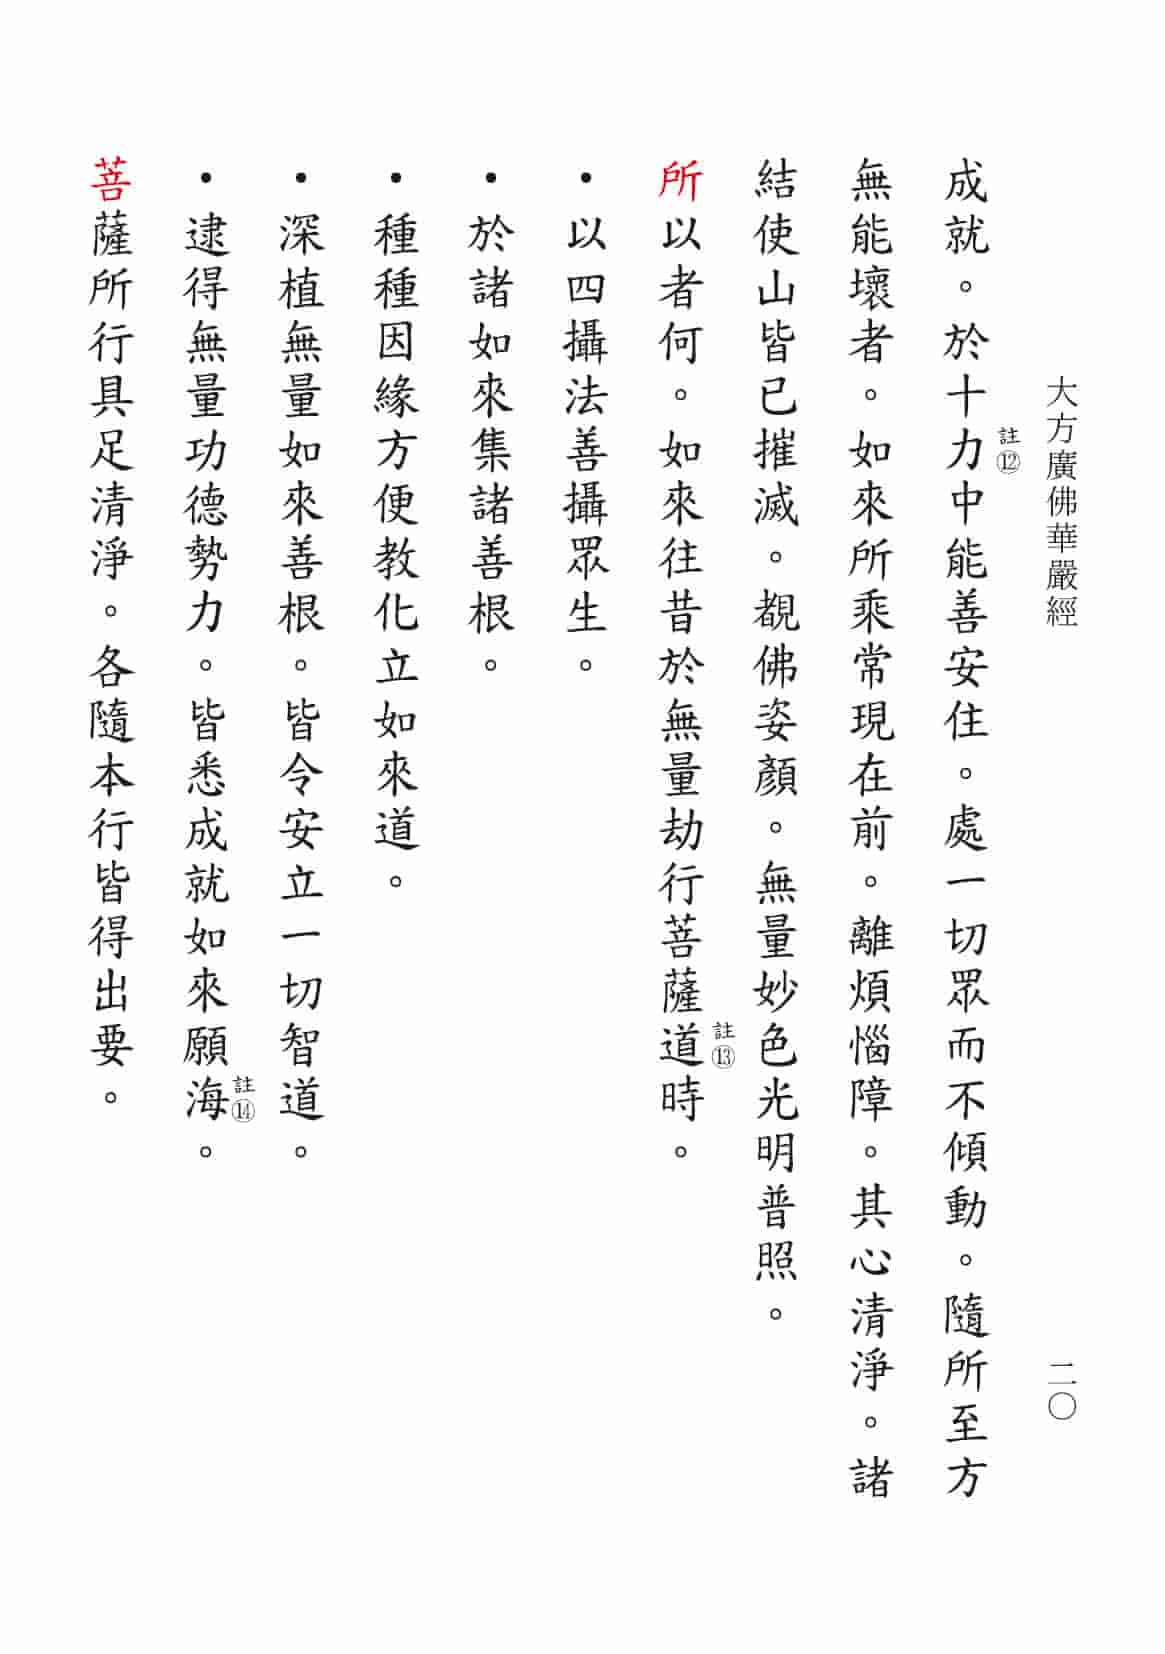 大方廣佛華嚴經
二〇
成就。於十力註⑫中能善安住。處一切眾而不傾動。隨所至方
無能壞者。如來所乘常現在前。離煩惱障。其心清淨。諸
結使山皆已摧滅。覩佛姿顏。無量妙色光明普照。
所以者何。如來往昔於無量劫行菩薩道註⑬時。
•以四攝法善攝眾生。
•於諸如來集諸善根。
•種種因緣方便教化立如來道。
•深植無量如來善根。皆令安立一切智道。
•逮得無量功德勢力。皆悉成就如來願海註⑭。
菩薩所行具足清淨。各隨本行皆得出要。